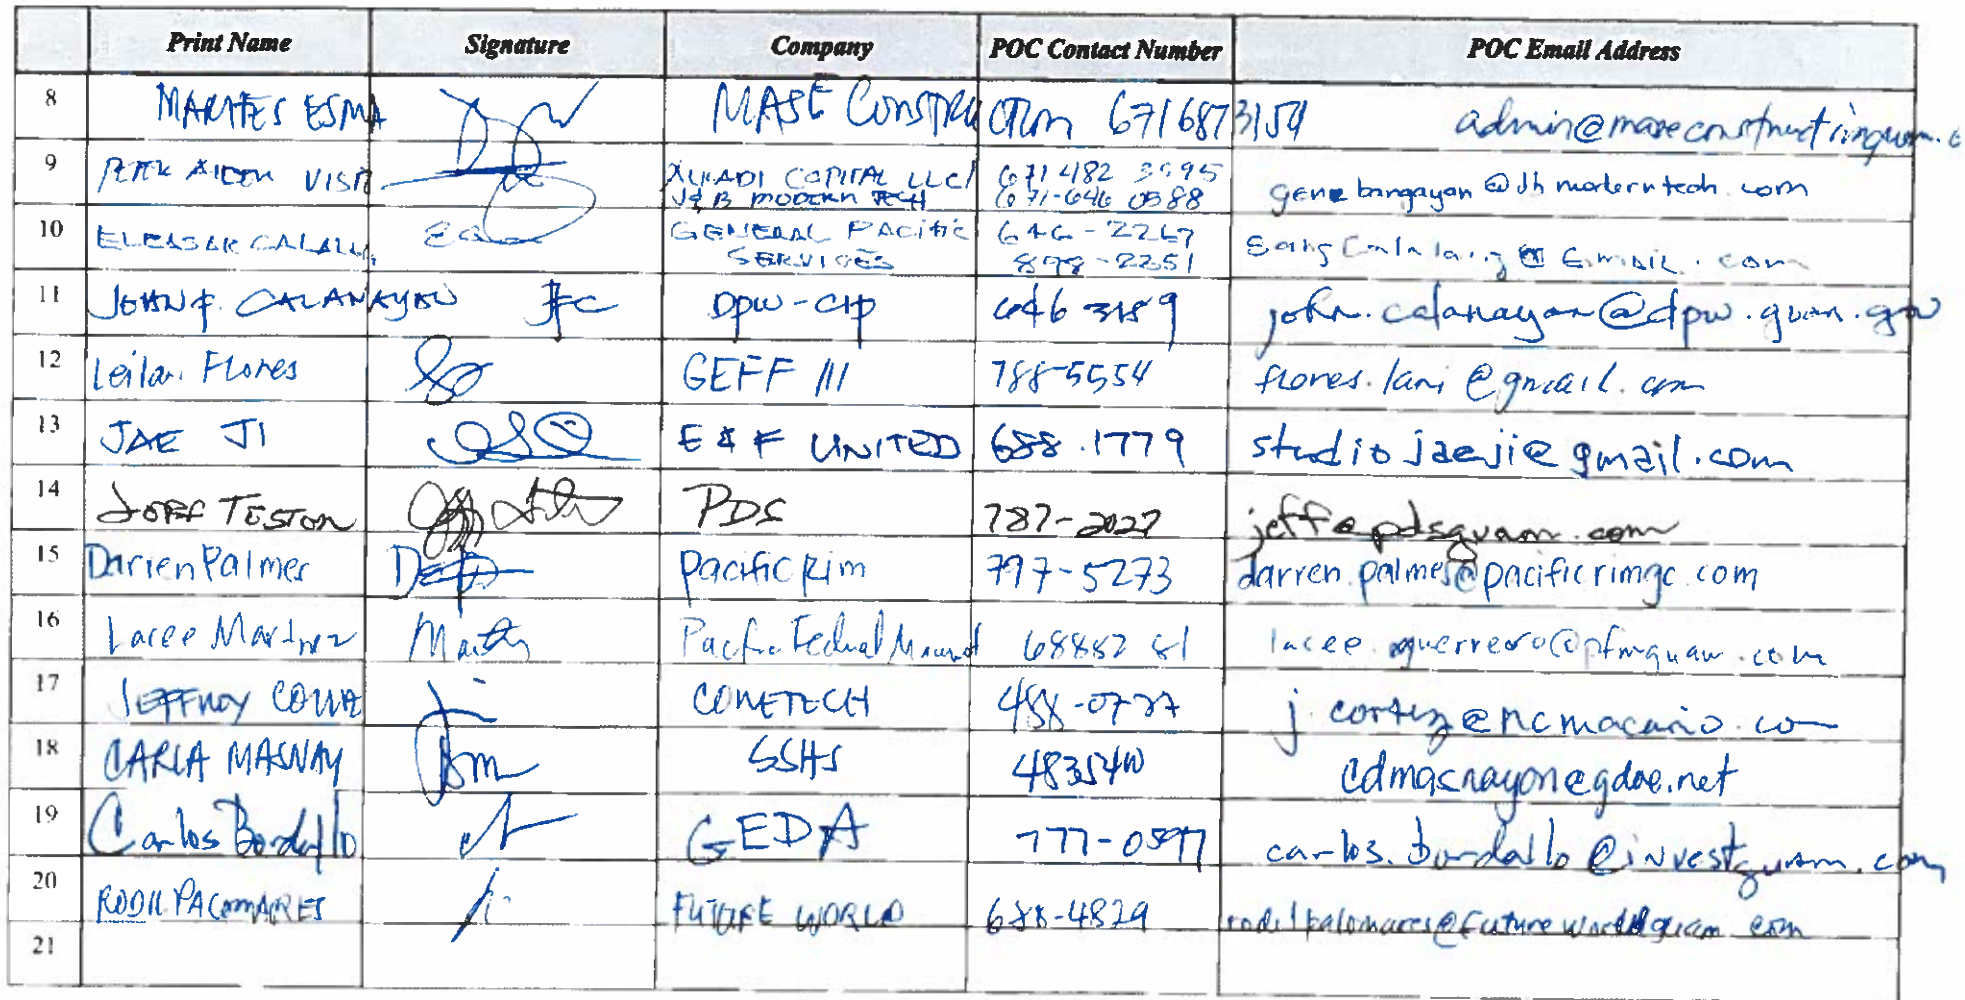 Print Name Signature Company POC Contact Number POC Email Address
8 MARITES ESMA MASE CONSTRUCTION 6716873154 admin@maseconstructionguam.c
9 VISTA XURADI CAPITAL LLC/ 671 482 3995 genebangayon@jbmoderntech.com
J&B MODERN TECH 671-646 0588
10 ELEASAR CALALANG GENERAL PACIFIC 646-2267 Eangcalalang@Gmail.com
SERVICES 898-2251
11 JOHN F. CALANAYAN JFC DPW-CIP 646 3189 john.calanayan@dpw.guam.gov
12 Leilani Flores GEFF III 788-5554 flores.lani@gmail.com
13 JAE JI E & F UNITED 688.1779 studiojaeji@gmail.com
14 JEFF TESTON PDS 787-2027 jeff@pdsguam.com
15 Darren Palmes Pacific Rim 797-5273 darren.palmes@pacificrimgc.com
16 Lacee Martinez Pacific Federal 6888281 lacee.guerrero@pfmguam.com
17 JEFFREY CORTEZ 488-0727 j.cortez@ncmacario.co
18 CARLA MASNAY SSHS 4835410 cdmasnayon@gdoe.net
19 Carlos Bordallo GEDA 777-0597 carlos.bordallo@investguam.com
20 RODIL PALOMARES FUTURE WORLD 688-4829 rodilpalomares@futureworldguam.com
21